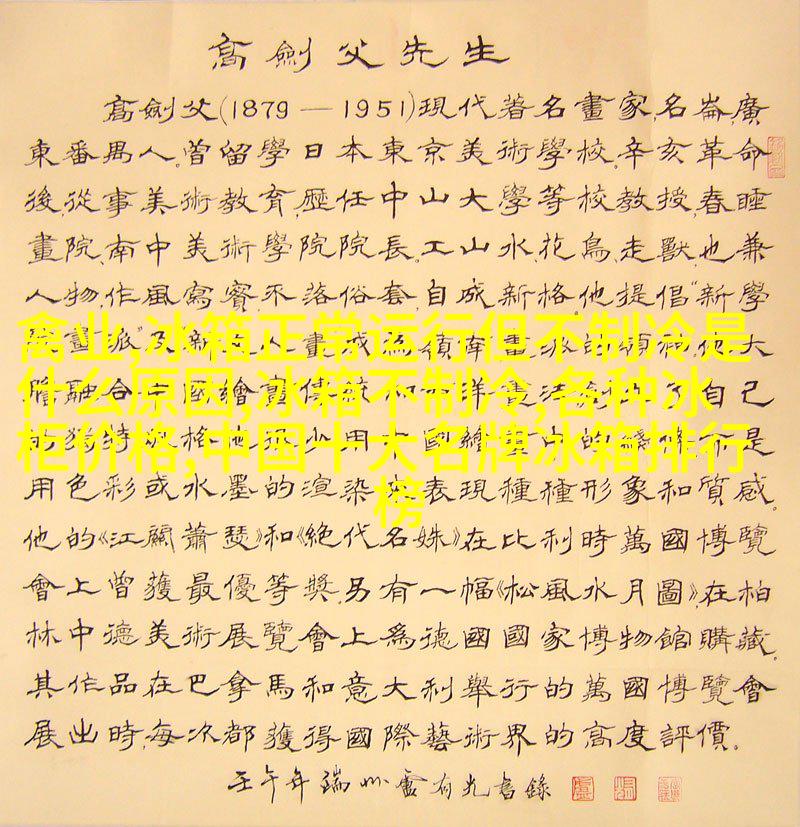 高劍父先生
高劍父(1879—1951)現代著名畫家,名崙,廣
東番禺人。曾留學日本東京美術學校.辛亥革命
後,從事美術教育,歷任中山大學等校教授,春睡
畫院、南中美術學院院長。工山水、花鳥、走獸,也兼
人物,作風寫實,不落俗套,自成新格.他提倡"新學
禽业,冰箱正常运行但不制冷是
他大
什么原因,冰箱不制冷,各种冰
融合 國繪 自己
柜价格,中国十大名牌冰箱排行
的獨特 格 是
榜
用色彩或水墨的渲染 表現種種形象和質感。
他的《江關蕭瑟》和《絕代名姝》在比利時萬國博覽
會上曾獲最優等獎.另有一幅《松風水月圖》,在柏
林中德美術展覽會上爲德國國家博物館購藏.
其作品在巴拿馬和意大利舉行的萬國博覽會
展出時,每次都獲得國際藝術界的高度評價。
壬午年端州盧有光書錄